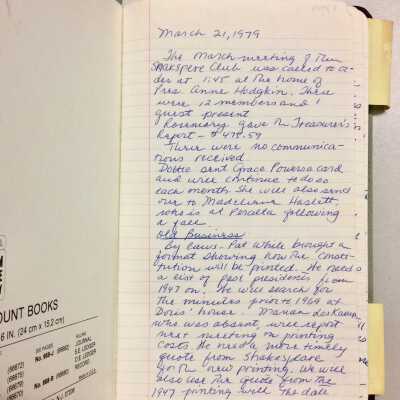 March 21, 1979
The March meeting of the
Shakspere Club was called to or-
der at 1:45 at the home of
Pres. Anne Hodgkin. There
were 12 members and 1
guest present
Rosemary gave the Treasurer's
Report - $478.59
There were no communica-
tions received
Dottie sent Grace Powers a card
and will continue to do so
each month. She will also send
one to Madeleine Haslett,
who is at Porcella following
a fall.
Old Business
By Laws - Pat While brought a
format showing how the Consti-
tution will be printed. He needs
a list of past presidents from
1947 on. He will search for
the minutes prior to 1969 at
Doris' house. Marian
who was absent will report
next meeting on printing
costs. We need a more timely
quote from Shakespeare
for the new printing. We will
also use the quote from the
1947 printing with the date
OUNT BOOKS
6 IN. (24 cm x 15.2 cm)
RULING
JOURNAL
S.E. LEDGER
D.E. LEDGER
RECORD
300 PAGES